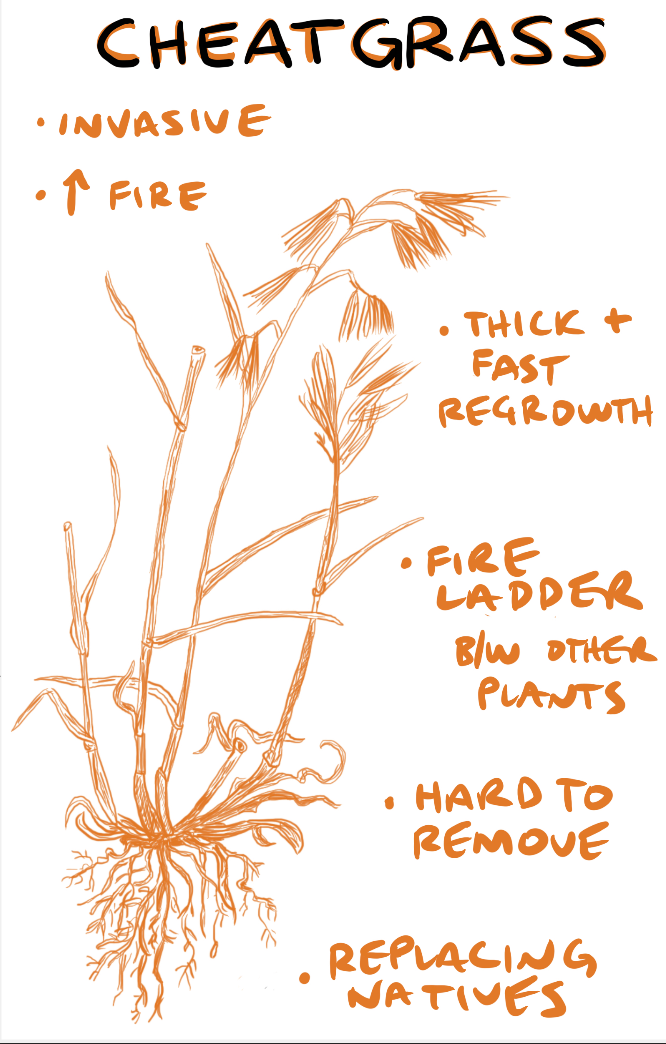 CHEATGRASS
• INVASIVE
• ↑ FIRE
• THICK +
FAST
REGROWTH
• FIRE
LADDER
B/W OTHER
PLANTS
• HARD TO
REMOVE
• REPLACING
NATIVES